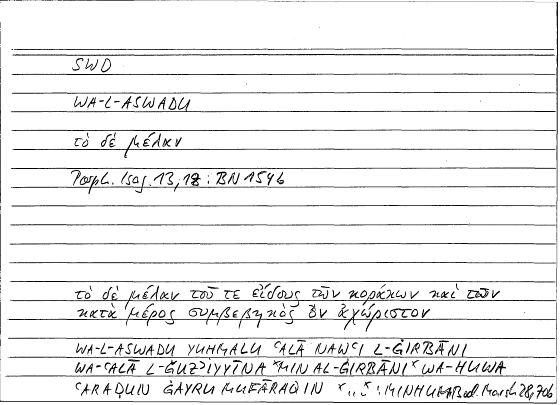 SWD
WA-L-ASWADU
τὸ δὲ μέλαν
Porph. Isag. 13,18 : BN 154b
τὸ δὲ μέλαν τοῦ τε εἴδους τῶν κοράκων καὶ τῶν
κατὰ μέρος συμβεβηκὸς ὂν ἀχώριστον
WA-L-ASWADU YUḤMALU ʿALĀ NAWʿI L-ĠIRBĀNI
WA-ʿALĀ L-ĠUZʾIYYĪNA ˣMIN AL-ĠIRBĀNIˣ WA-HUWA
ʿARAḌUN ĠAYRU MUFĀRAQIN ˣ...ˣ : MINHUMA Bod. Marsh 28,